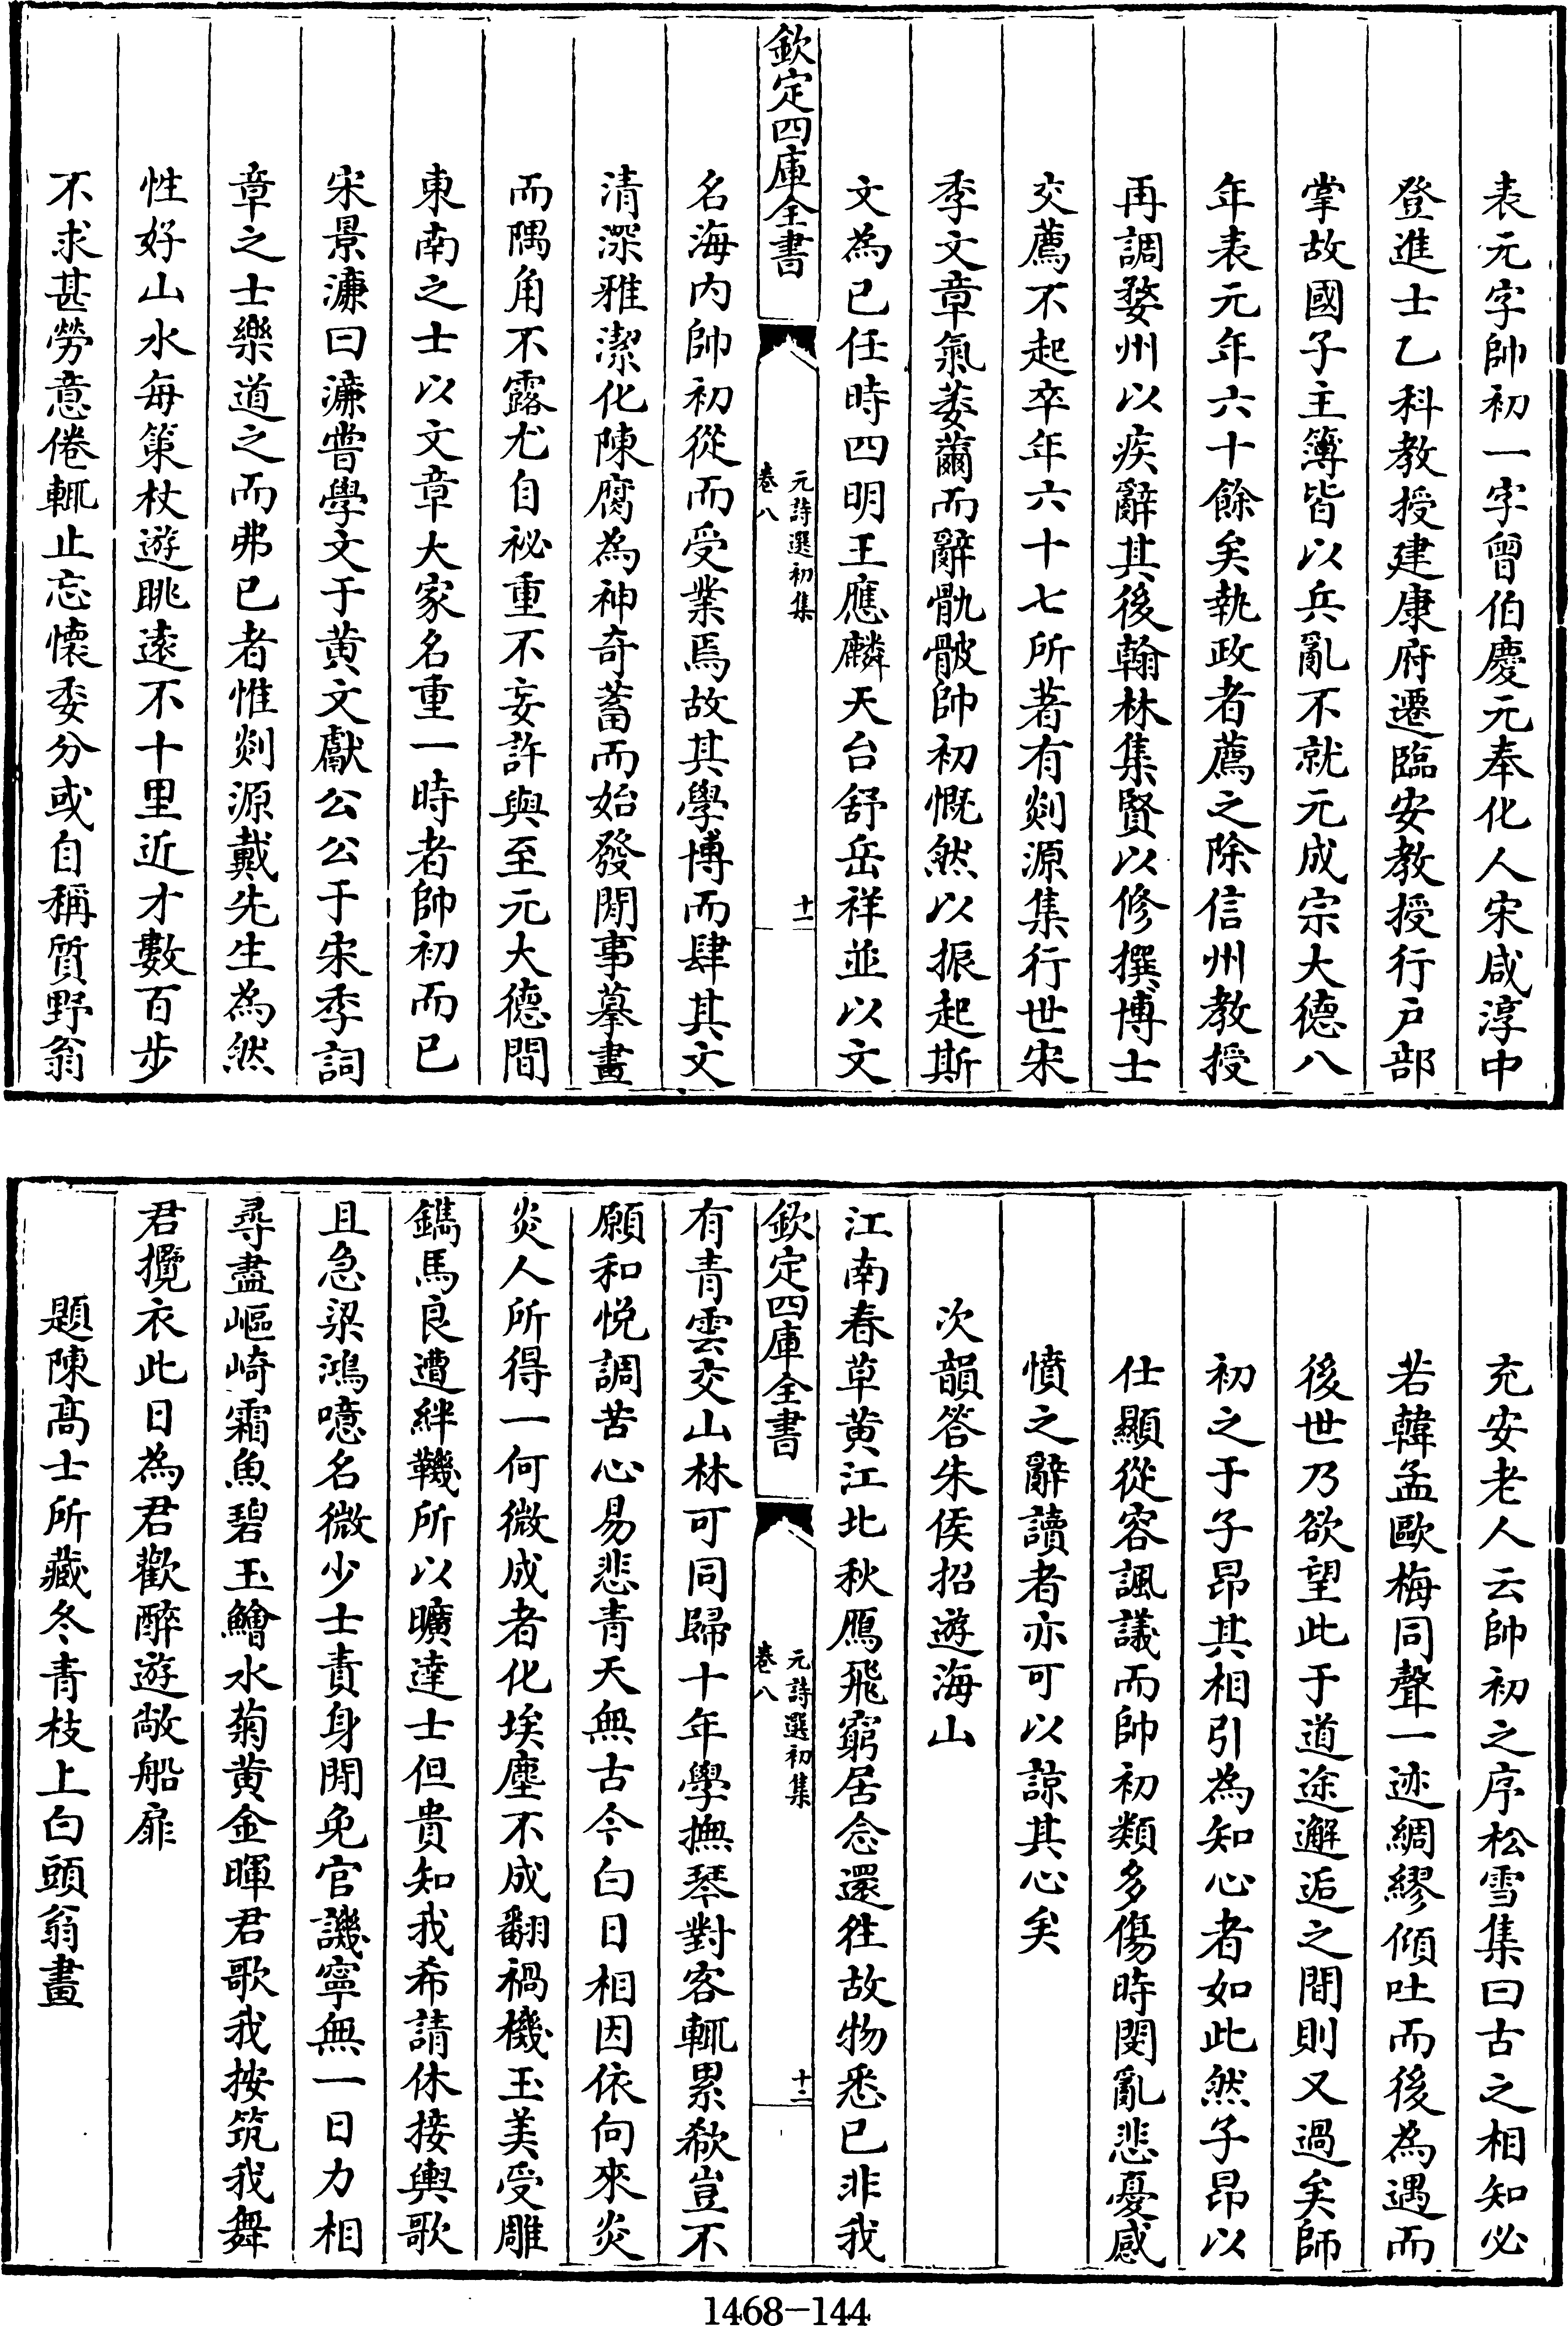 表元字帥初一字曾伯慶元奉化人宋咸淳中
登進士乙科教授建康府遷臨安教授行戸部
掌故國子主簿皆以兵亂不就元成宗大德八
年表元年六十餘矣執政者薦之除信州教授
再調婺州以疾辭其後翰林集賢以修撰博士
交薦不起卒年六十七所著有剡源集行世宋
季文章氣萎薾而辭骫骳帥初慨然以振起斯
文為已任時四明王應麟天台舒岳祥並以文
欽定四庫全書
元詩選初集
卷八
十一
名海内帥初從而受業焉故其學博而肆其文
清深雅潔化陳腐為神奇蓄而始發閒事摹畫
而隅角不露尤自祕重不妄許與至元大德間
東南之士以文章大家名重一時者帥初而已
宋景濂曰濂嘗學文于黄文獻公公于宋季詞
章之士樂道之而弗已者惟剡源戴先生為然
性好山水每策杖遊眺逺不十里近才數百步
不求甚勞意倦輒止忘懷委分或自稱質野翁
充安老人云帥初之序松雪集曰古之相知必
若韓孟歐梅同聲一迹綢繆傾吐而後為遇而
後世乃欲望此于道途邂逅之間則又過矣師
初之于子昂其相引為知心者如此然子昂以
仕顯從容諷議而帥初類多傷時閔亂悲憂感
憤之辭讀者亦可以諒其心矣
次韻答朱侯招遊海山
江南春草黄江北秋鴈飛窮居念還往故物悉已非我
欽定四庫全書
元詩選初集
卷八
十二
有青雲交山林可同歸十年學撫琴對客輒累欷豈不
願和悦調苦心易悲青天無古今白日相因依向來炎
炎人所得一何微成者化埃塵不成翻禍機玉美受雕
鐫馬良遭絆鞿所以曠達士但貴知我希請休接輿歌
且急梁鴻噫名微少士責身閒免官譏寧無一日力相
尋盡嶇崎霜魚碧玉鱠水菊黄金暉君歌我按筑我舞
君攬衣此日為君歡醉遊敞船扉
題陳髙士所藏冬青枝上白頭翁畫
1468-144